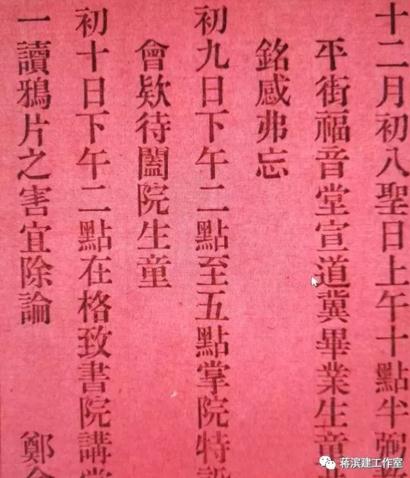 十二月初八聖日上午十點半
平街福音堂宣道冀畢業生童
銘感弗忘
初九日下午二點至五點掌院特
會欵待闔院生童
初十日下午二點在格致書院講堂
一讀鴉片之害宜除論 鄭
蒋滨建工作室